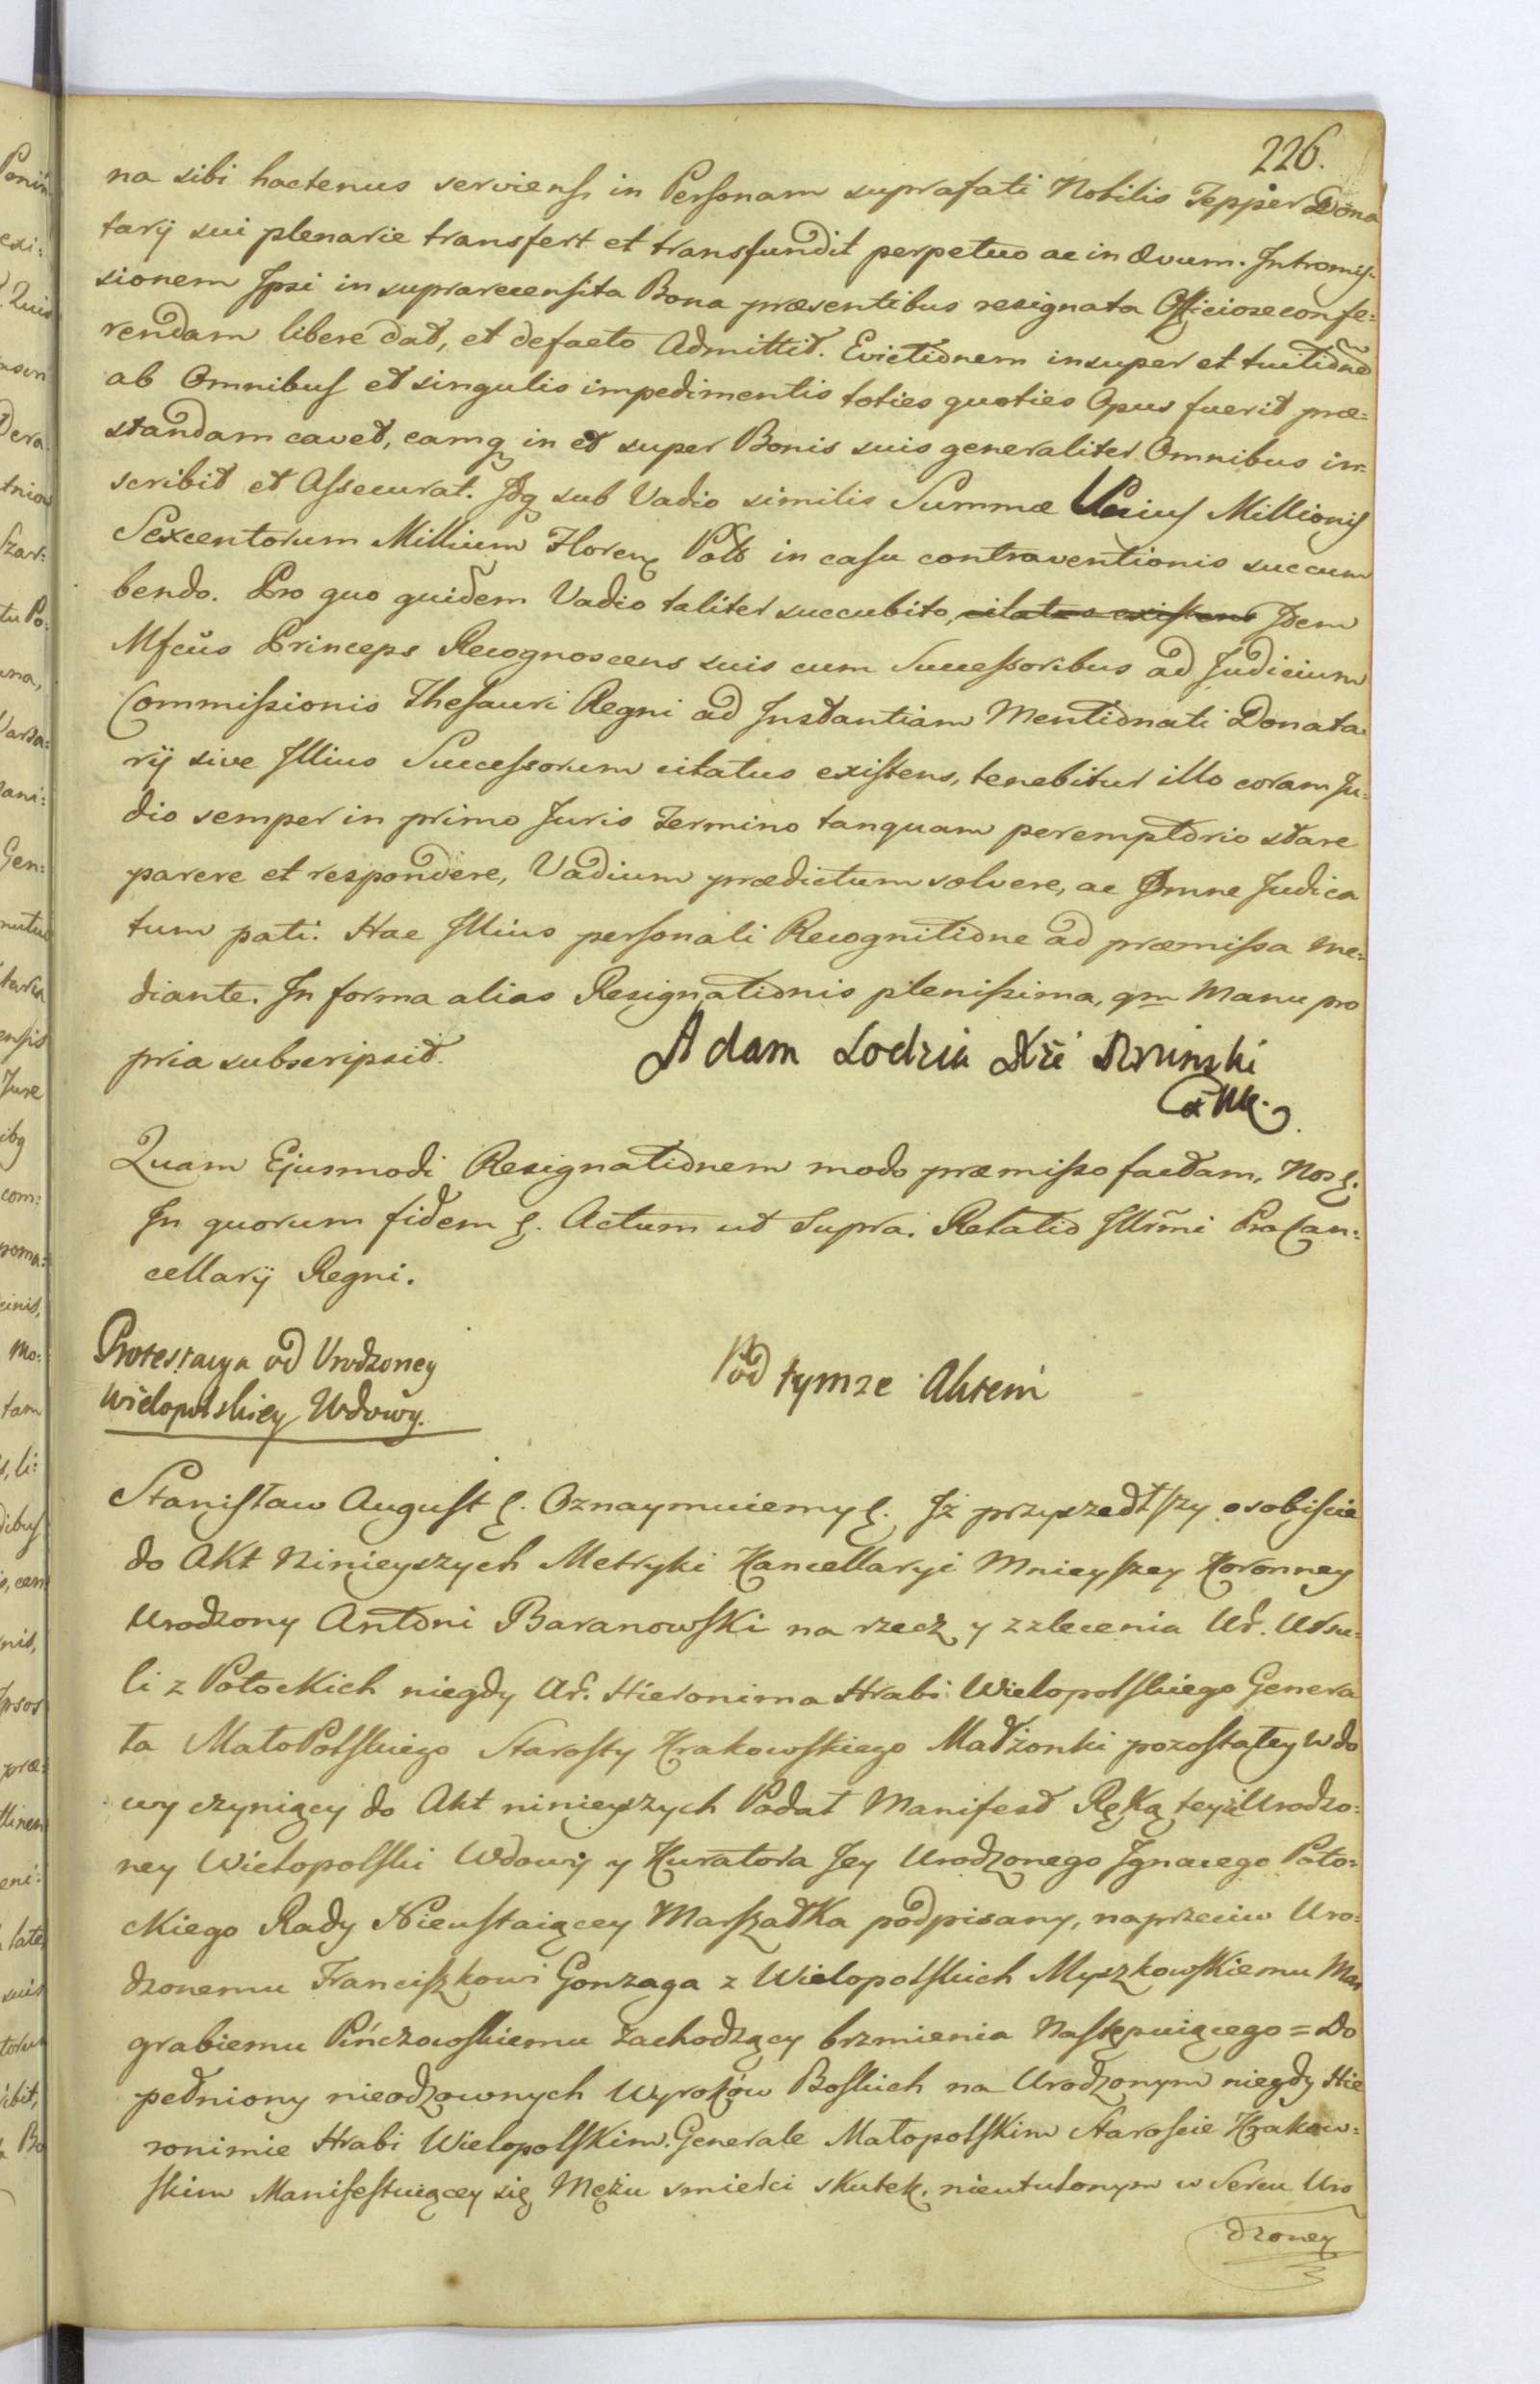 226.
na sibi hactenus serviens, in Personam suprafati Nobilis Tepper Dona
tarij sui plenarie transfert et transfundit perpetuo ac in Ævum. Intromis-
sionem Ipsi in suprarecensita Bona præsentibus resignata Officiose confe=
rendam libere dat, et defacto Admittit. Evictionem insuper et tuitione
ab Omnibus et singulis impedimentis toties quoties Opus fuerit præ=
standam cavet, eamq in et super Bonis suis generaliter Omnibus in-
scribit et Assecurat. Idq sub Vadio similis Summæ Unius Millionis
Sexcentorum Millium Floren Pols in casu contraventionis succum
bendo. Pro quo quidem Vadio taliter succubito, citatus existens Idem
Mfcus Princeps Recognoscens suis cum Successoribus ad Judicium
Commissionis Thesauri Regni ad Instantiam Mentionati Donata
rij sive Illius Successorum citatus existens, tenebitur illo coram Ju=
dio semper in primo Juris Termino tanquam peremptorio stare
parere et respondere, Vadium prædictum solvere, ac Omne Judica
tum pati. Hac Illius personali Recognitione ad præmissa me=
diante. In forma alias Resignationis plenissima, qm Manu pro
pria subscripsit.
Adam Lodzia
Quam Ejusmodi Resignationem modo præmisso factam, Nos
In quorum fidem Actum ut Supra. Relatio Illrmi ProCan=
cellarij Regni.
Protestacya od Urodzoney
Wielopolskiey Wdowy.
Pod tymze Aktem
Stanisław August Oznaymuiemy Iż przyszedłszy osobiście
do Akt Ninieyszych Metryki Kancellaryi Mnieyszey Koronney
Urodzony Antoni Baranowski na rzecz y z zlecenia Ur. Ursu=
li z Potockich niegdy Ur. Hieronima Hrabi Wielopolskiego Genera
ła MałoPolskiego Starosty Krakowskiego Małżonki pozostałey Wdo
wy czyniący do Akt ninieyszych Podał Manifest Ręką teyż Urodzo=
ney Wielopolski Wdowy y Kuratora Jey Urodzonego Ignacego Poto=
ckiego Rady Nieustaiącey Marszałka podpisany, naprzeciw Uro=
dzonemu Franciszkowi Gonzaga z Wielopolskich Myszkowskiemu Mar
grabiemu Pińczowskiemu zachodzący brzmienia Następuiącego = Do
pełniony nieodzownych Wyroków Boskich na Urodzonym niegdy Hie
ronimie Hrabi Wielopolskim Generale Małopolskim Staroście Krakow=
skim Manifestuiącey się Mężu smierci skutek, nieutulonym w Sercu Uro
dzoney